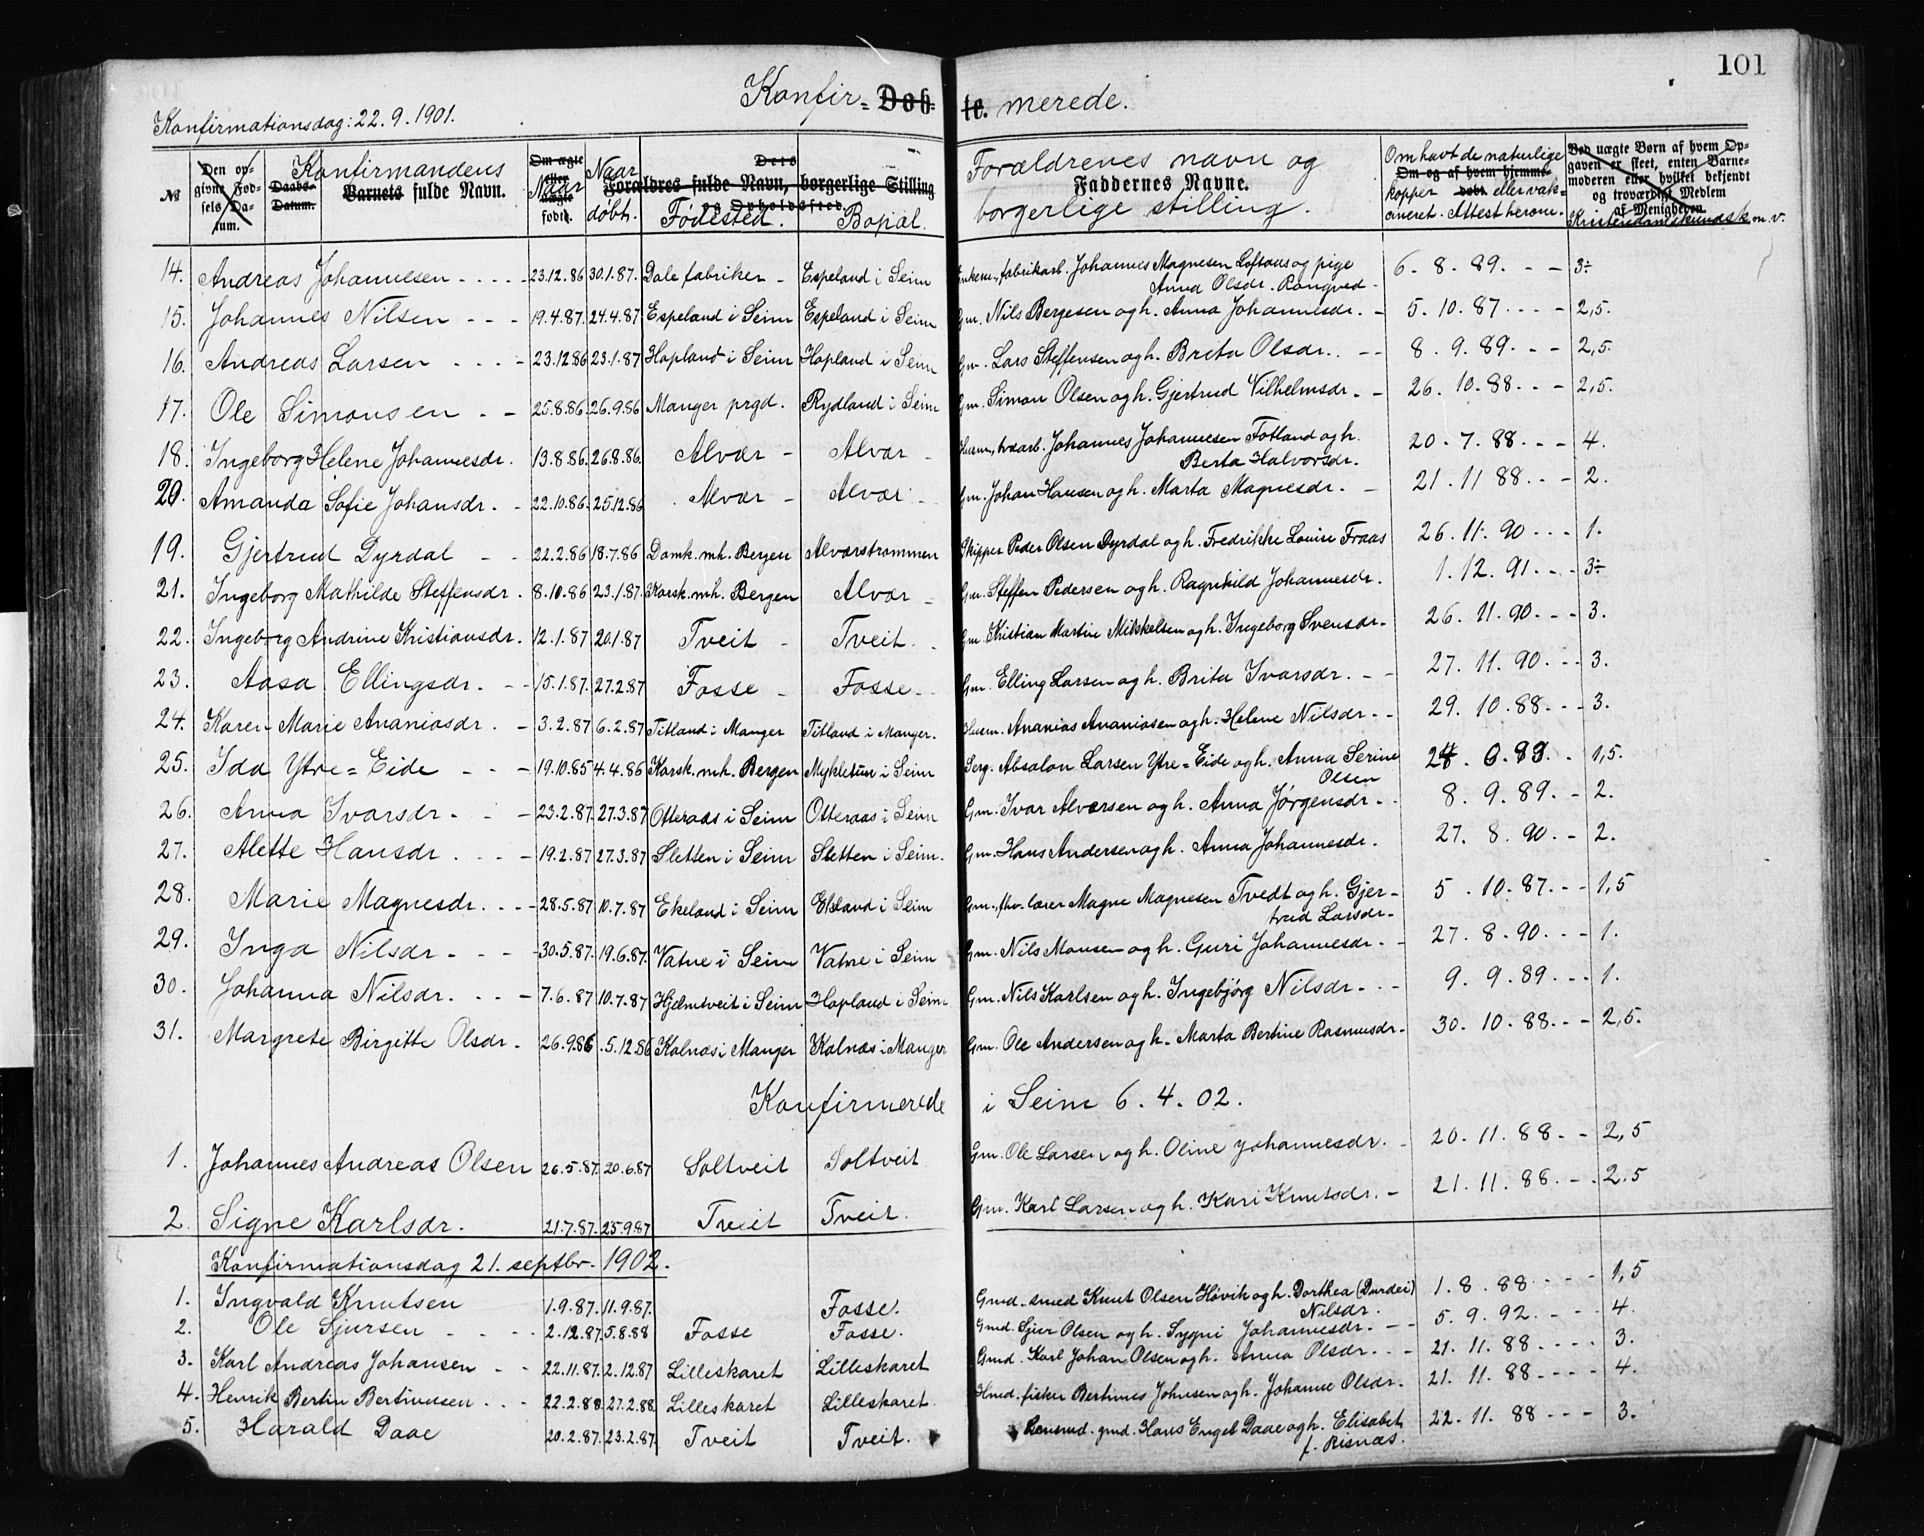 101
Konfir- Døb- te. merede.
Konfirmationsdag: 22.9.1901.
№ Den opgivne Fødsels Datum. Daabs-Datum. Konfirmandens Barnets fulde Navn. Om ægte eller uægte Naar født. Naar døbt. Dets Forældres fulde Navn, borgerlige Stilling og Opholdssted. Fødested. Bopæl. Forældrenes navn og Faddernes Navne. borgerlige stilling. Om havt de naturlige Om og af hvem hjemme- kopper døbt eller vaksineret. Attest herom. Ved uægte Børn af hvem Opgaven er skeet, enten Barnemoderen eller hvilket bekjendt og troværdigt Medlem af Menigheden. Kristendomskundsk. m.v.
14. Andreas Johannesen 23.12.86 30.1.87. Dale fabriker Espeland i Seim fabrikarb. Johannes Magnesen Loftaas og pige 6.8.89. 3÷
Anna Olsdr. Rongved
15. Johannes Nilsen 19.4.87. 24.4.87. Espeland i Seim Espeland i Seim Gm. Nils Bergesen og h. Anna Johannesdr. 5.10.87. 2,5.
16. Andreas Larsen 23.12.86 23.1.87 Hopland i Seim Hopland i Seim Gm. Lars Steffensen og h. Brita Olsdr. 8.9.89. 2,5.
17. Ole Simonsen 25.8.86. 26.9.86 Manger prgd. Rydland i Seim Gm. Simon Olsen og h. Gjertrud Vilhelmsdr. 26.10.88. 2,5.
18. Ingeborg Helene Johannesdr. 13.8.86. 26.8.86. Alvær Alvær Johannes Johannesen Fotland og h. 20.7.88. 4.
Berta Halvorsdr.
20. Amanda Sofie Johansdr. 22.10.86. 25.12.86 Alvær Alvær Gm. Johan Hansen og h. Marta Magnesdr. 21.11 88. 2.
19. Gjertrud Dyrdal 22.2.86 18.7.86 Domk. mh. Bergen Alværstrømmen Skipper Peder Olsen Dyrdal og h. Fredrikke Louise Fraas 26.11.90 1.
21. Ingeborg Mathilde Steffensdr. 8.10.86 23.1.87. Korsk. mh. Bergen Alvær Gm. Steffen Pedersen og h. Ragnhild Johannesdr. 1.12.91. 3÷
22. Ingeborg Andrine Kristiansdr. 12.1.87 20.1.87 Tveit Tveit. Gm. Kristian Martin Mikkelsen og h. Ingeborg Svensdr. 26.11.90. 3.
23. Aasa Ellingsdr. 15.1.87. 27.2.87 Fosse Fosse Gm. Elling Larsen og h. Brita Ivarsdr. 27.11.90. 3.
24. Karen Marie Ananiasdr. 3.2.87 6.2.87 Titland i Manger Titland i Manger. Husm. Ananias Ananiasen og h. Helene Nilsdr. 29.10.88. 3.
25. Ida Ytre-Eide 19.10.85 4.4.86 Korsk. mh. Bergen Mykletun i Seim Serg. Absalon Larsen Ytre-Eide og h. Anna Serine 1,5.
Olsen
26. Anna Ivarsdr. 23.2.87. 27.3.87 Otteraas i Seim Otteraas i Seim Gm. Ivar Alversen og h. Anna Jørgensdr. 8.9.89. 2.
27. Alette Hansdr. 19.2.87 27.3.87 Sletten i Seim Sletten i Seim. Gm. Hans Andersen og h. Anna Johannesdr. 27.8.90. 2.
28. Marie Magnesdr. 28.5.87 10.7.87 Ekeland i Seim Ekeland i Seim Gm. lærer Magne Magnesen Tvedt og h. Gjer- 5.10.87. 1,5
trud Larsdr.
29. Inga Nilsdr. 30.5.87. 19.6.87. Vatne i Seim Vatne i Seim Gm. Nils Monsen og h. Guri Johannesdr. 27.8.90. 1.
30. Johanna Nilsdr. 7.6.87 10.7.87 Hjelmtveit i Seim Hopland i Seim Gm. Nils Karlsen og h. Ingebjörg Nilsdr. 9.9.89. 1.
31. Margrete Birgitte Olsdr. 26.9.86 5.12.86 Kolnæs i Manger Kolnæs i Manger Gm. Ole Andersen og h. Marta Bertine Rasmusdr. 30.10.88. 2,5.
Konfirmerede i Seim 6.4.02.
1. Johannes Andreas Olsen 26.5.87. 20.6.87 Soltveit Soltveit Gm. Ole Larsen og h. Oline Johannesdr. 20.11.88. 2,5
2. Signe Karlsdr. 21.7.87. 25.9.87 Tveit Tveit. Gm. Karl Larsen og h. Kari Knutsdr. 21.11.88. 2.5
Konfirmationsdag 21. septbr. 1902.
1. Ingvald Knutsen 1.9.87. 11.9.87. Fosse. Gmd. smed Knut Olsen Høvik og h. Dorthea (Durdei) 1.8.88 1,5
Nilsdr.
2. Ole Sjursen 2.12.87. 5.8.88 Fosse Fosse. Gmd. Sjur Olsen og h. Sygni Johannesdr. 5.9.92. 4.
3. Karl Andreas Johansen 22.11.87. 2.12.87 Lilleskaret Lilleskaret Gmd. Karl Johan Olsen og h. Anna Olsdr. 21.11.88 3.
4. Henrik Bertin Bertinusen 22.2.88 27.2.88. Lilleskaret Lilleskaret Hmd. fisker Bertinus Johnsen og h. Johanne Olsdr. 21.11.88 4.
5. Harald Daae 20.2.87. 23.2.87. Tveit Tveit. gmd. Hans Engel Daae og h. Elisabet 22.11.88 3.
f. Risnæs.